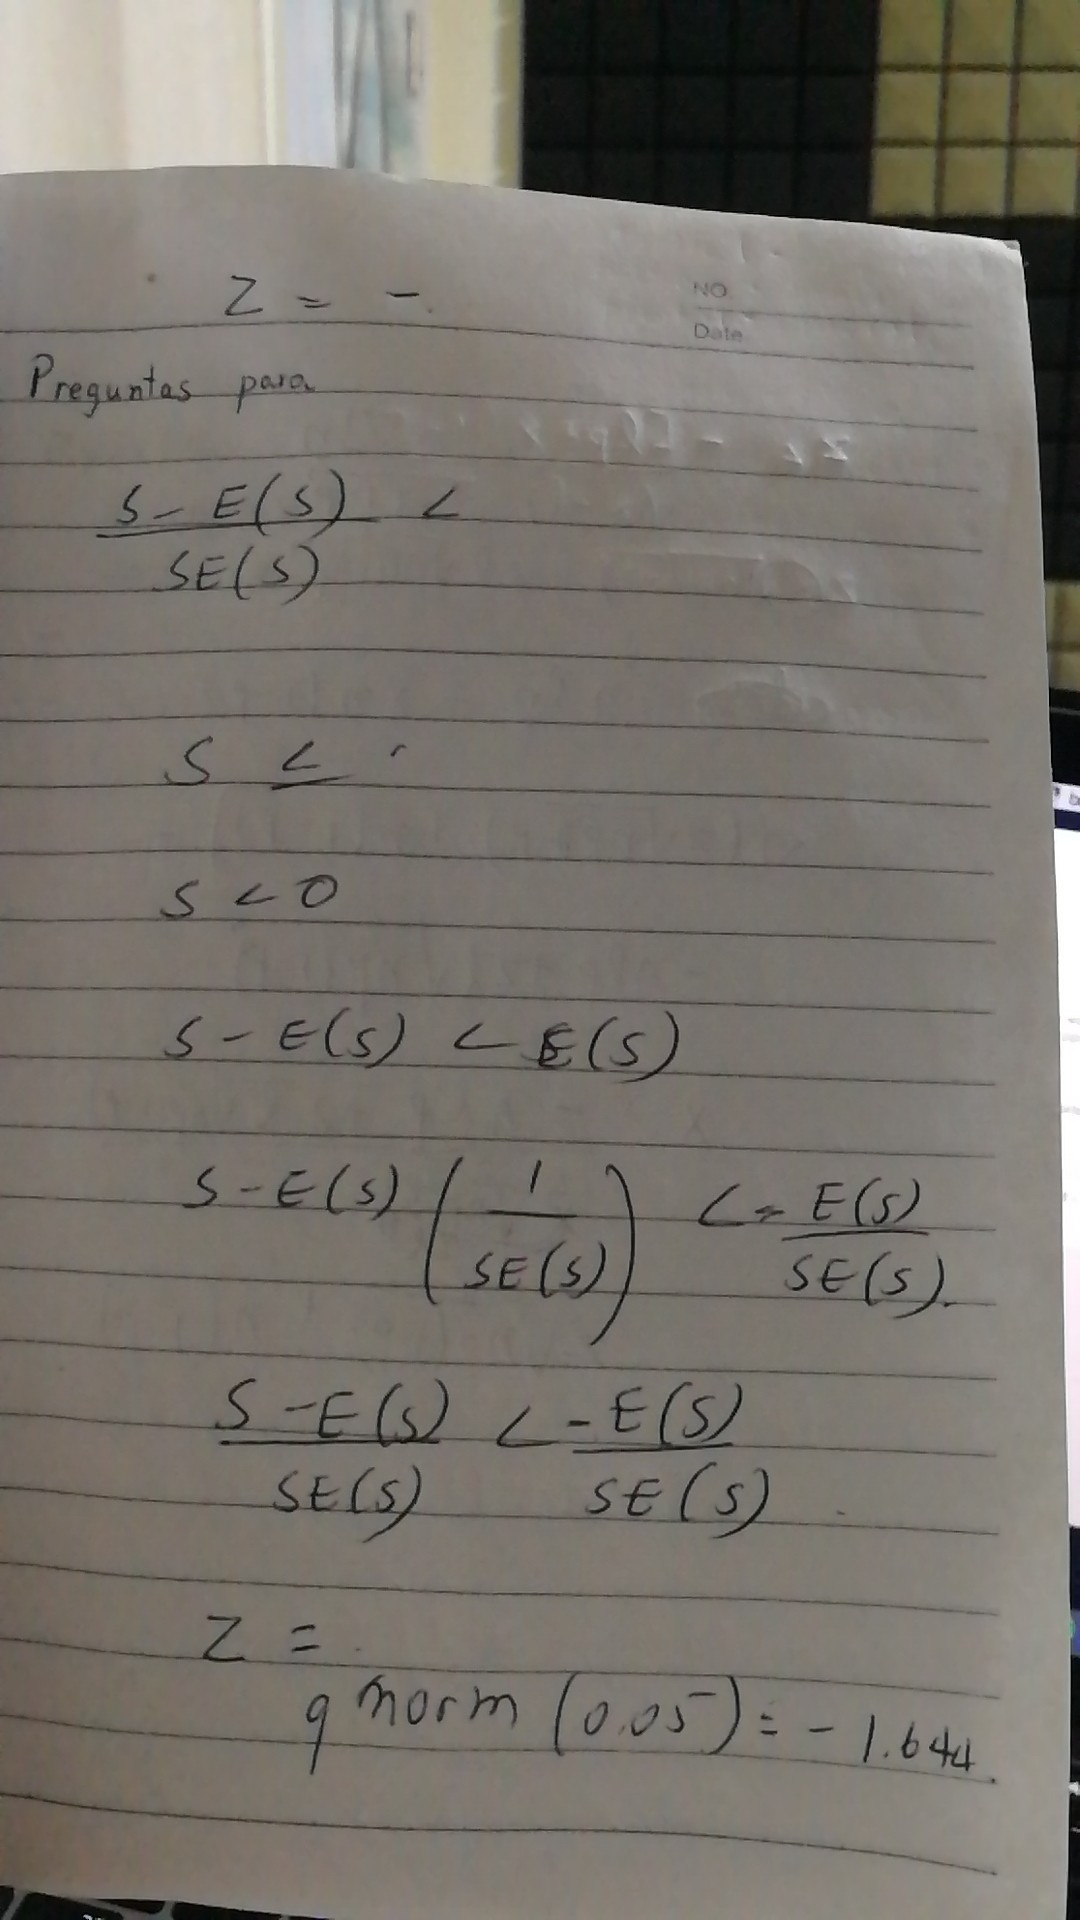 Z = -.
NO.
Date
Preguntas para
S - E(S) <
SE(S)
S <
S < 0
S - E(S) < E(S)
S - E(S) ( 1 / SE(S) ) < - E(S) / SE(S).
S - E(S) / SE(S) < - E(S) / SE(S).
Z =
qnorm (0.05) = - 1.644.